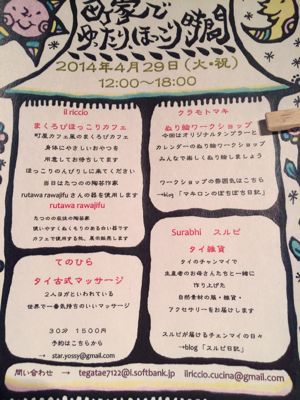 町家で
ゆったりほっこり時間
2014年4月29日(火・祝)
12:00〜18:00
il riccio
まくろびほっこりカフェ
町屋カフェ風のまくろびカフェ
身体にやさしいおやつを
用意してお待ちしてます
ほっこりのんびりしに来てください
当日はたつのの陶芸作家
rutawa rawajifuさんの器を使用します
rutawa rawajifu
たつのの在住の陶芸作家
使いやすくぬくもりのある白い器です
カフェで使用する他、展示販売します
クラモトマキ
ぬり絵ワークショップ
今回はオリジナルタンブラーと
カレンダーのぬり絵ワークショップ
みんなで楽しくぬり絵しましょう
ワークショップの雰囲気はこちら
→blog「マキロンのぼちぼち日記」
てのひら
タイ古式マッサージ
2人ヨガといわれている
世界で一番気持ちのいいマッサージ
30分 1500円
予約はこちらから
→ star.yossy@gmail.com
Surabhi スルビ
タイ雑貨
タイのチャンマイで
生産者のお母さんたちと一緒に
作り上げた
自然素材の服・雑貨・
アクセサリーをお届けします
スルビが届けるチェンマイの日々
→blog「スルビ日記」
問い合わせ → tegatae7122@i.softbank.jp ilriccio.cucina@gmail.com